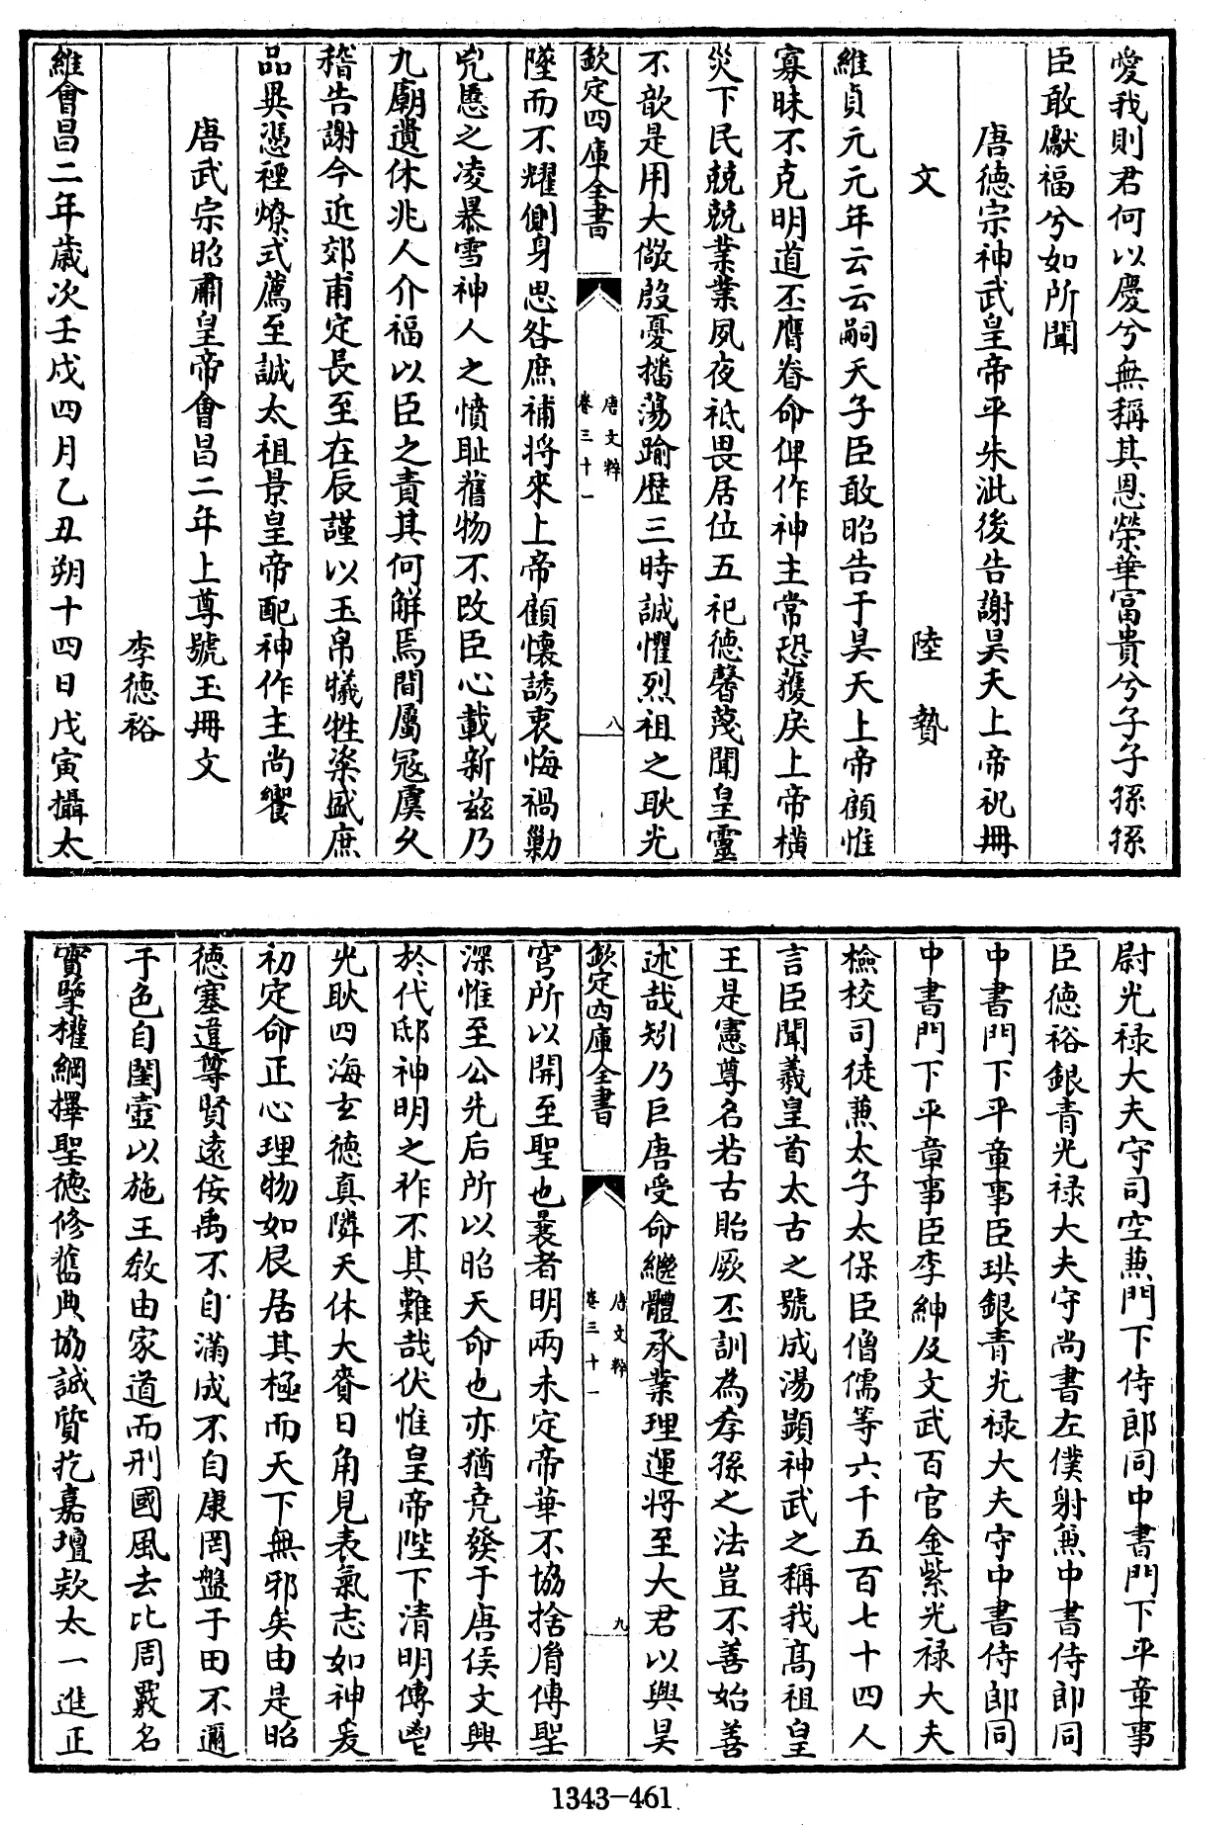 愛我則君何以慶兮無稱其恩榮華富貴兮子子孫孫
臣敢獻福兮如所聞
唐德宗神武皇帝平朱泚後告謝昊天上帝祝冊
文 陸贄
維貞元元年云云嗣天子臣敢昭告于昊天上帝顧惟
寡昧不克明道丕膺眷命俾作神主常恐獲戾上帝橫
災下民兢兢業業夙夜祇畏居位五祀德馨蔑聞皇靈
不歆是用大儆殷憂播蕩踰歴三時誠懼烈祖之耿光
欽定四庫全書
唐文粹
卷三十一
八
墜而不耀側身思咎庶補將來上帝顧懷誘衷悔禍勦
兇慝之凌暴雪神人之憤耻舊物不改臣心載新兹乃
九廟遺休兆人介福以臣之責其何解焉間屬冦虞久
稽告謝今近郊甫定長至在辰謹以玉帛犧牲粢盛庶
品異憑禋燎式薦至誠太祖景皇帝配神作主尚饗
唐武宗昭肅皇帝會昌二年上尊號玉冊文
李德裕
維會昌二年歲次壬戌四月乙丑朔十四日戊寅攝太
尉光禄大夫守司空兼門下侍郎同中書門下平章事
臣德裕銀青光禄大夫守尚書左僕射兼中書侍郎同
中書門下平章事臣珙銀青光禄大夫守中書侍郎同
中書門下平章事臣李紳及文武百官金紫光禄大夫
檢校司徒兼太子太保臣僧儒等六千五百七十四人
言臣聞羲皇首太古之號成湯顯神武之稱我高祖皇
王是憲尊名若古貽厥丕訓為孝孫之法豈不善始善
述哉矧乃巨唐受命繼體承業理運將至大君以興昊
欽定四庫全書
唐文粹
卷三十一
九
穹所以開至聖也曩者明兩未定帝華不協捨胤傳聖
深惟至公先后所以昭天命也亦猶堯發于唐侯文興
於代邸神明之祚不其難哉伏惟皇帝陛下清明傳鬯
光耿四海玄德真隣天休大賚日角見表氣志如神爰
初定命正心理物如辰居其極而天下無邪矣由是昭
德塞違尊賢遠佞禹不自滿成不自康罔盤于田不邇
于色自閨壼以施王敎由家道而刑國風去比周覈名
實擥權綱擇聖德修舊典協誠質圪嘉壇款太一進正
1343-461